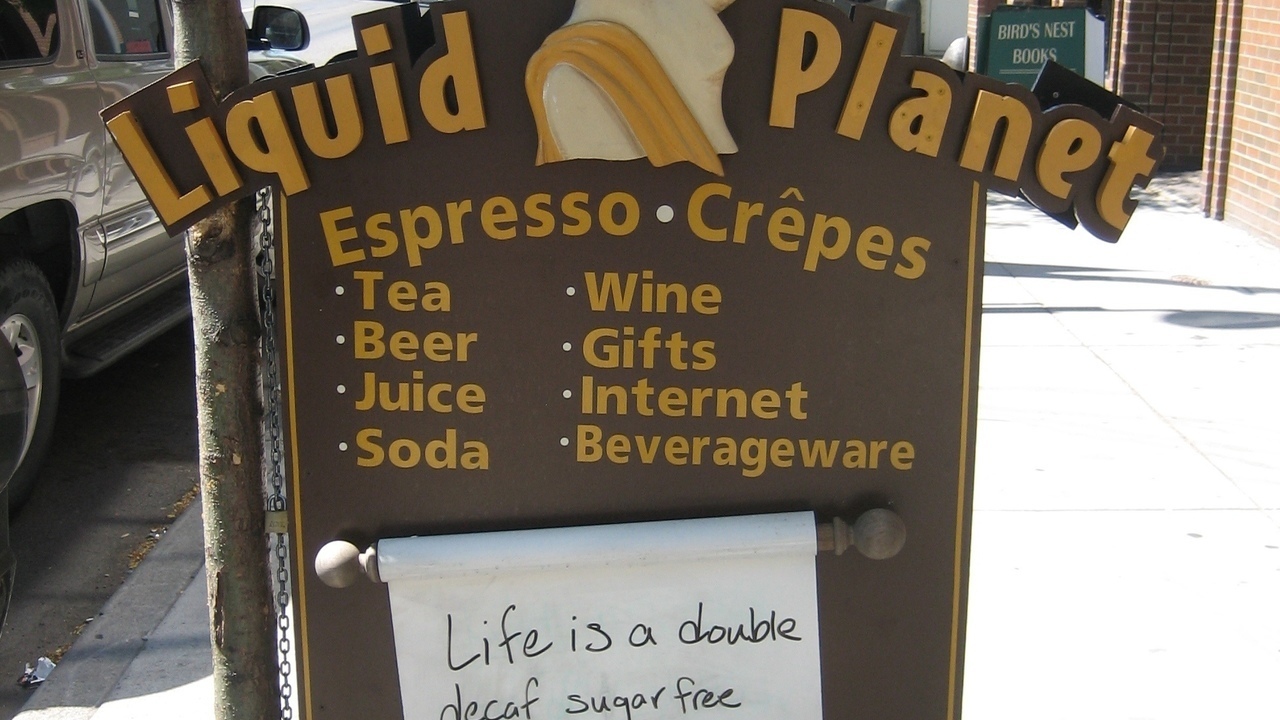 Liquid Planet
BIRD'S NEST
BOOKS
Espresso • Crêpes
• Tea
• Beer
• Juice
• Soda
• Wine
• Gifts
• Internet
• Beverageware
Life is a double
decaf sugar free